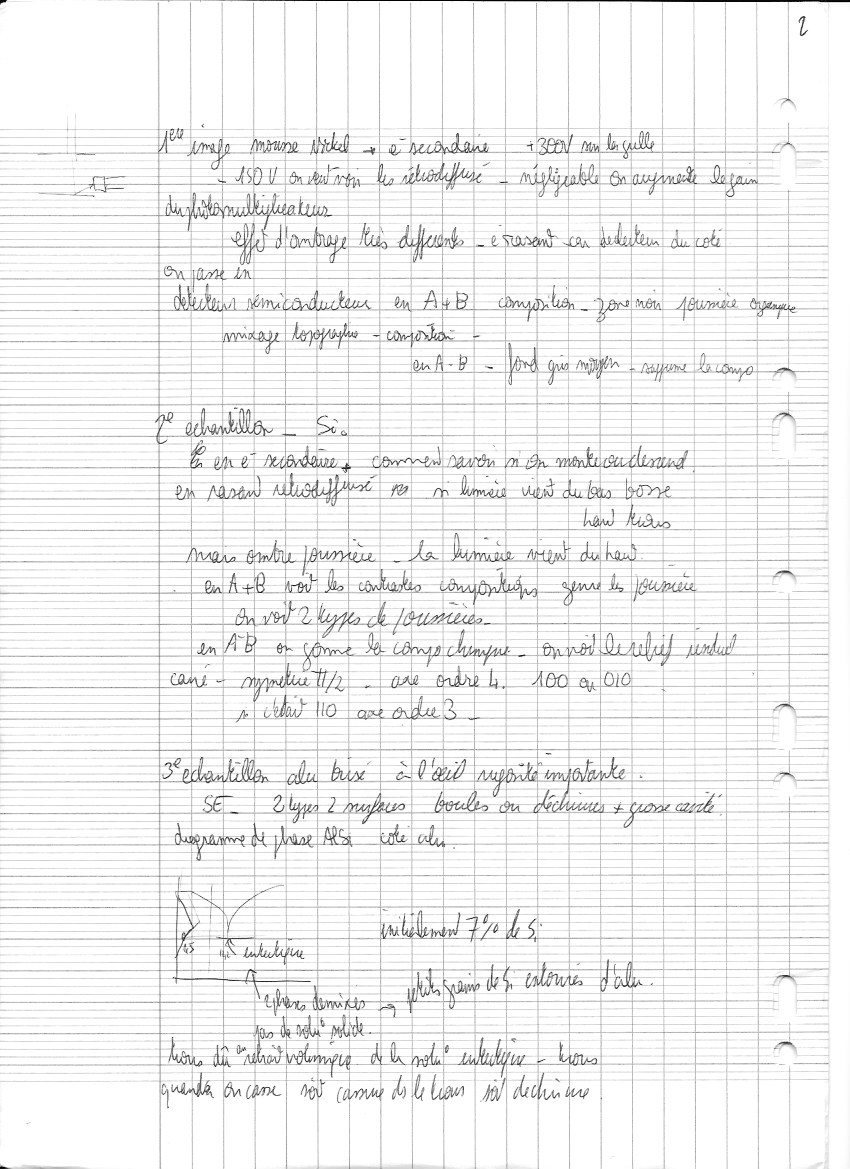 2
1ere image mousse Nickel → e- secondaire +300V sur la grille
- 150 V on veut voir les rétrodiffusé - négligeable on augmente le gain
du photomultiplicateur
effet d'ombrage très differents - e- rasant car detecteur du coté
on passe en
detecteur semiconducteur en A+B composition - zone noir poussière organique
mixage topographie - composition -
en A-B - fond gris moyen - supprime la compo
2e echantillon - Si.
en e- secondaire + comment savoir si on monte ou descend.
en rasant rétrodiffusé si lumière vient du bas bosse
haut trous
mais ombre poussière - la lumière vient du haut.
en A+B voit les contrastes compositions genre les poussière
on voit 2 types de poussières -
en A-B on gomme la compo chimique - on voit le relief
carré - symetrie π/2 - axe ordre 4. 100 ou 010
si c'etait 110 axe ordre 3 -
3e echantillon alu brisé à l'œil rugosité importante.
SE - 2 types 2 surfaces boules ou déchirures + grosse cavité.
diagramme de phase AlSi coté alu.
initialement 7% de Si
1,5 eutectique
2 phases demixées → petits grains de Si entourés d'alu.
pas de solu° solide.
trous dû au retrait volumique de la solu° eutectique - trous
quand on casse soit cassure ds le trous soit dechirure.